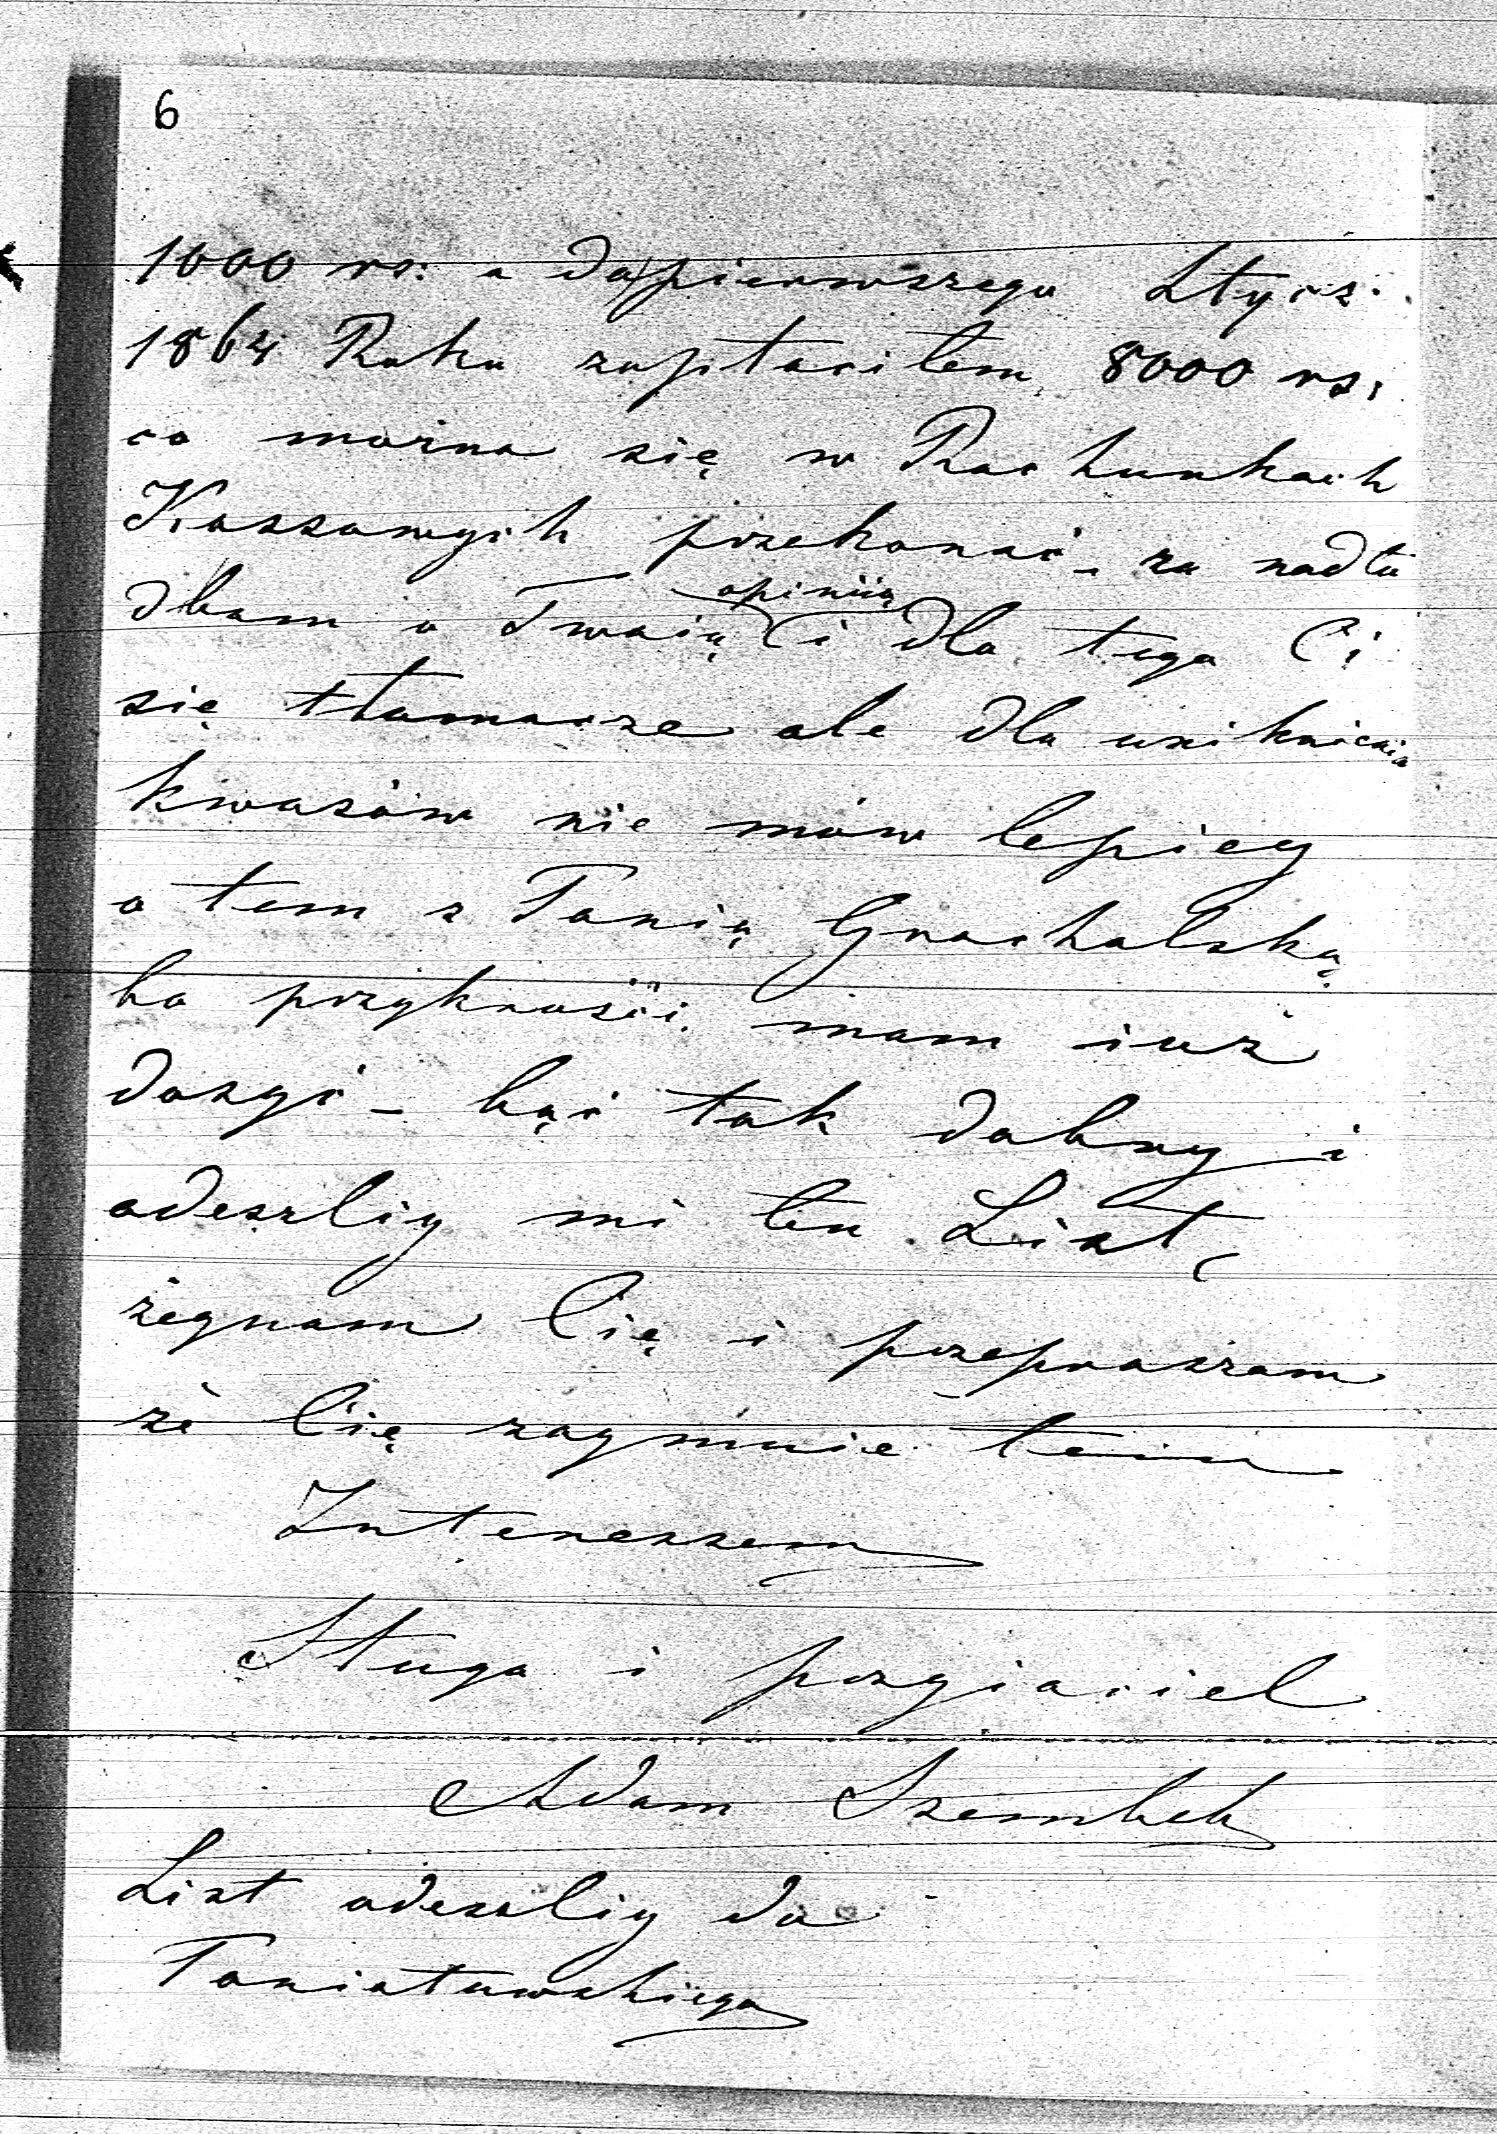 6
1000 rs: a do pierwszego Stycz.
1864 Roku zapłaciłem 8000 rs.
co można się w Rachunkach
Kassowych przekonać – za nadto
dbam o Twoią opiniią i dla tego Ci
się tłomacze ale dla uniknienia
kwasów nie mów lepiey
o tem z Panią Grochalską
bo przykrości mam iuż
dosyć – bąć tak dobry i
odeszliy mi ten List,
żegnam Cię i przepraszam
że Cię zaymuie tem
Interessem
Sługa i przyiaciel
Adam Szembek
List odeszliy do
Poniatowskiego